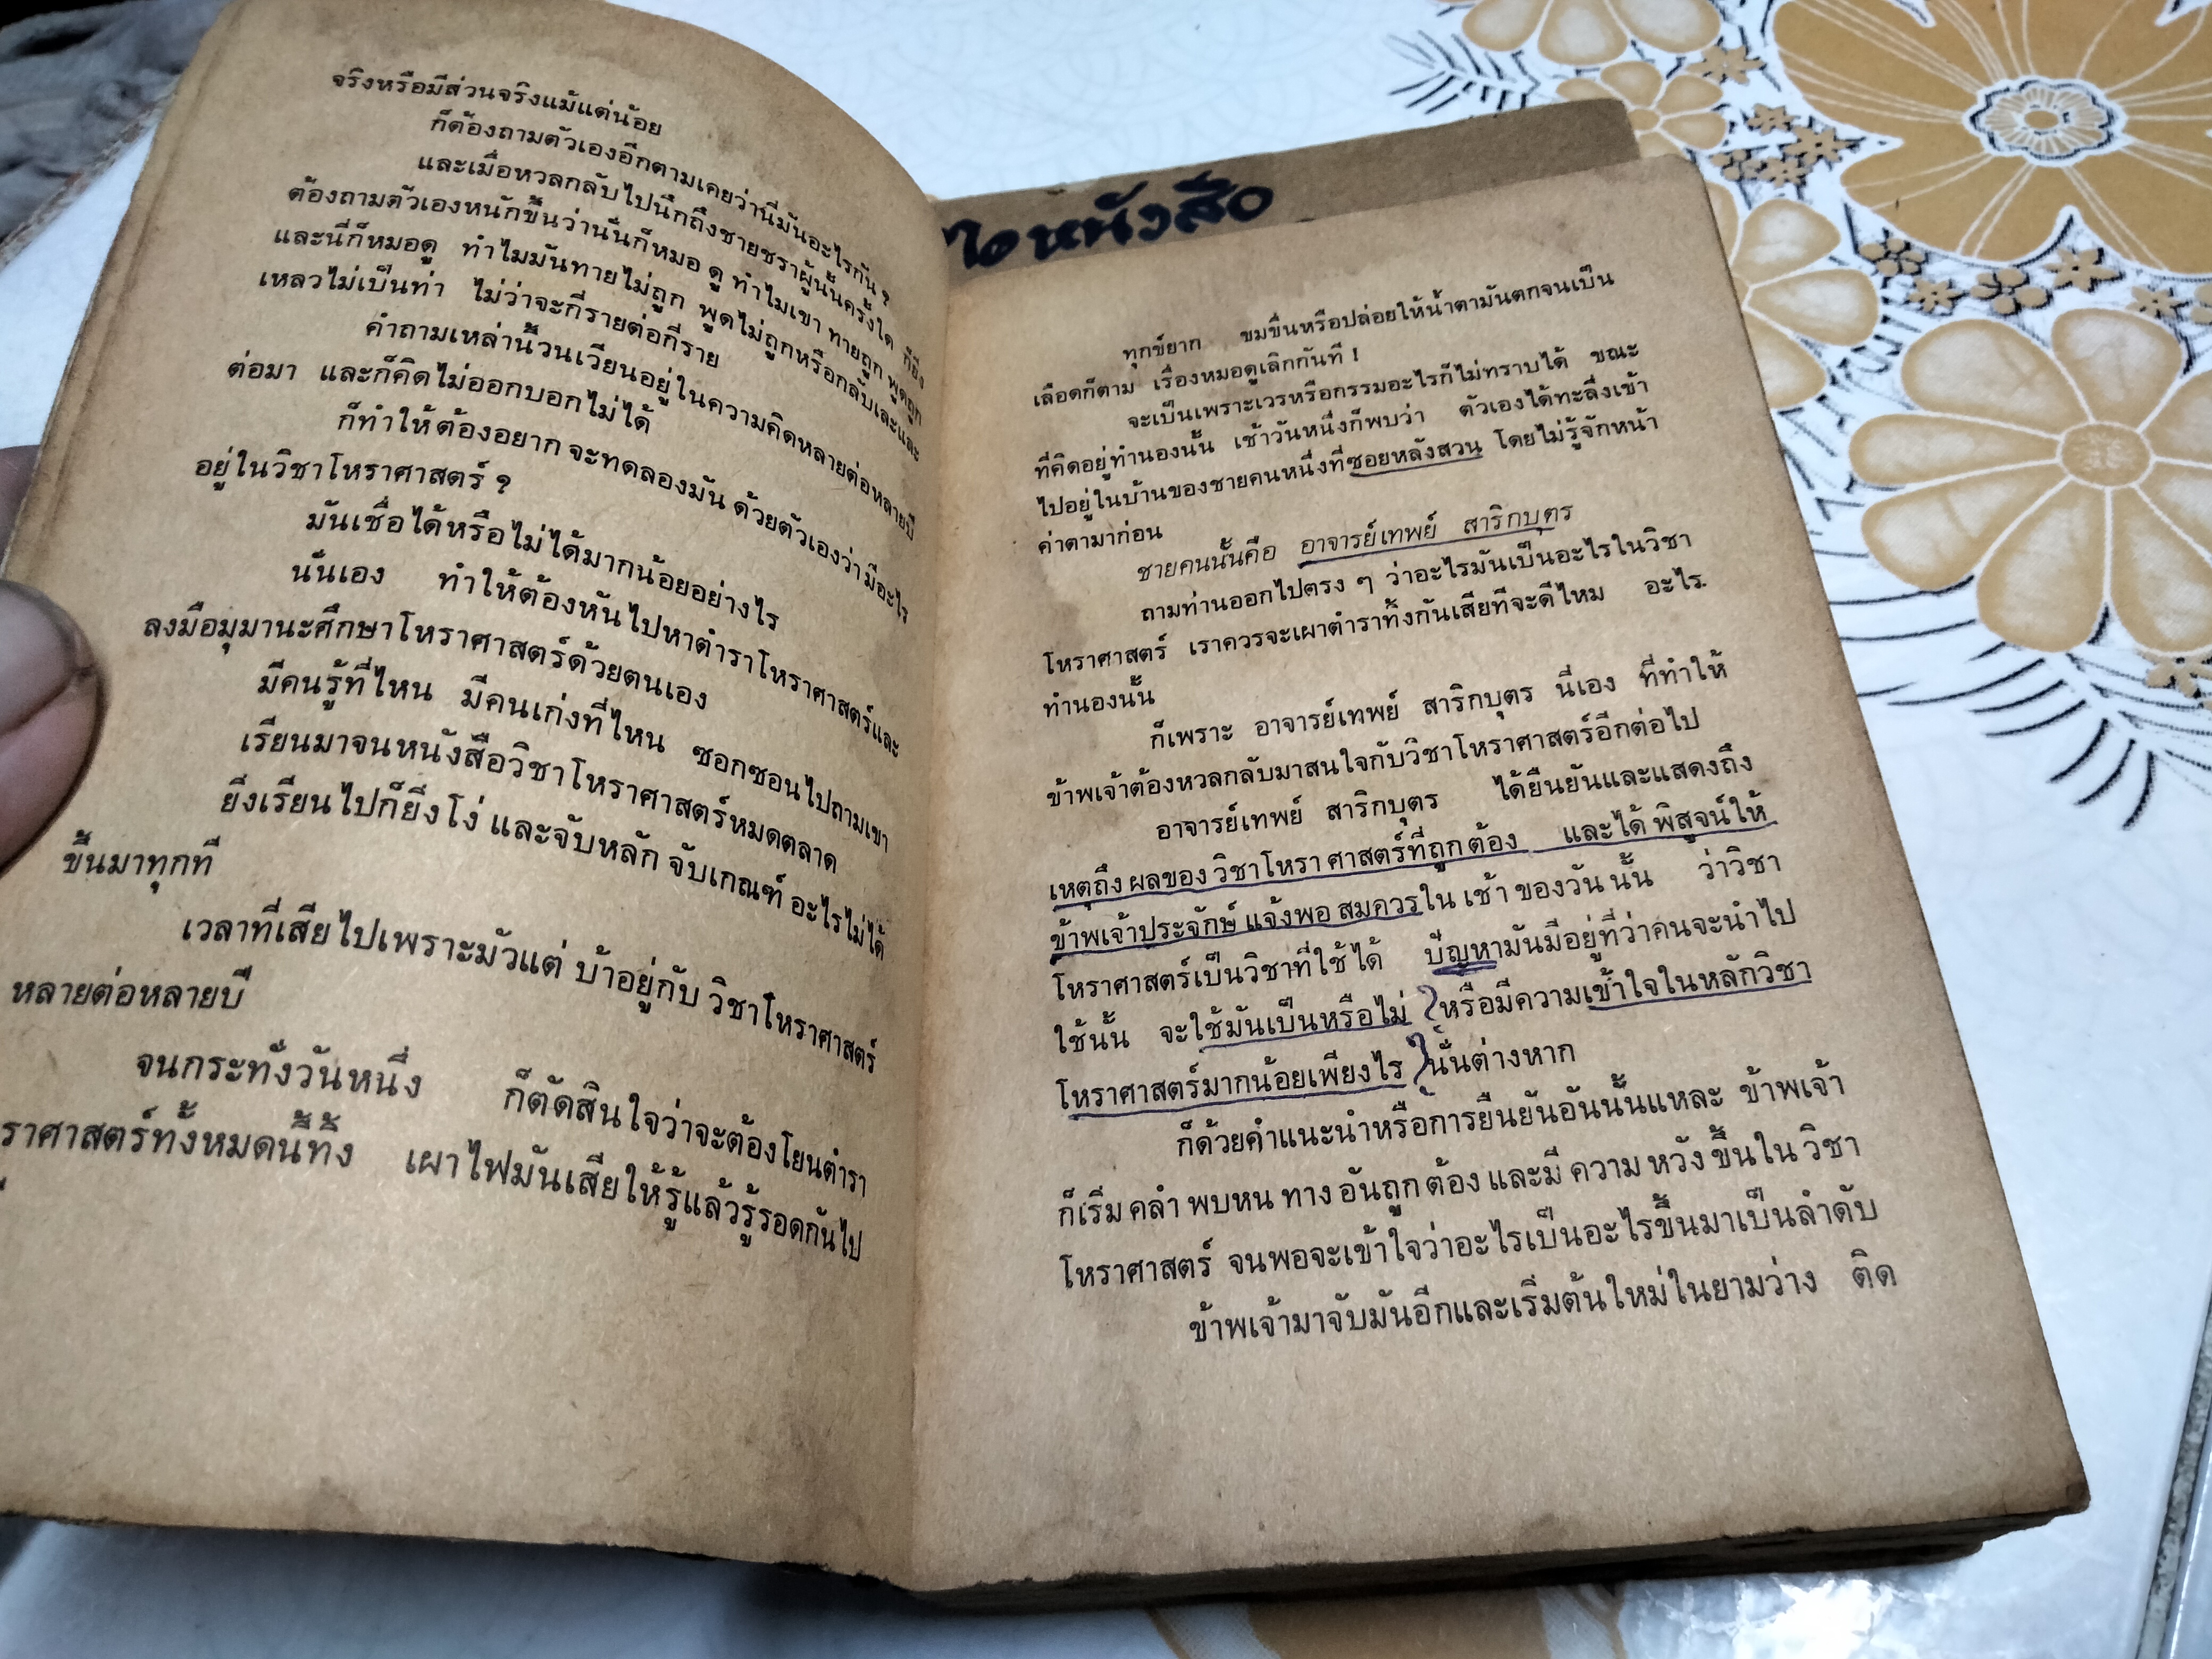 จริงหรือมีส่วนจริงแม้แต่น้อย
ก็ต้องถามตัวเองอีกตามเคยว่านี่มันอะไรกัน ?
และเมื่อหวลกลับไปนึกถึงชายชราผู้นั้นครั้งใด ก็ยิ่ง
ต้องถามตัวเองหนักขึ้นว่านั่นก็หมอ ดู ทำไมเขา ทายถูก พูดถูก
และนี่ก็หมอดู ทำไมมันทายไม่ถูก พูดไม่ถูกหรือกลับเละและ
เหลวไม่เป็นท่า ไม่ว่าจะกี่รายต่อกี่ราย
คำถามเหล่านี้วนเวียนอยู่ในความคิดหลายต่อหลายปี
ต่อมา และก็คิดไม่ออกบอกไม่ได้
ก็ทำให้ต้องอยาก จะทดลองมัน ด้วยตัวเองว่า มีอะไร
อยู่ในวิชาโหราศาสตร์ ?
มันเชื่อได้หรือไม่ได้มากน้อยอย่างไร
นั่นเอง ทำให้ต้องหันไปหาตำราโหราศาสตร์และ
ลงมือมุมานะศึกษาโหราศาสตร์ด้วยตนเอง
มีคนรู้ที่ไหน มีคนเก่งที่ไหน ซอกซอนไปถามเขา
เรียนมาจนหนังสือวิชาโหราศาสตร์หมดตลาด
ยิ่งเรียนไปก็ยิ่งโง่ และจับหลัก จับเกณฑ์ อะไรไม่ได้
ขึ้นมาทุกที
เวลาที่เสียไปเพราะมัวแต่ บ้าอยู่กับ วิชาโหราศาสตร์
หลายต่อหลายปี
จนกระทั่งวันหนึ่ง ก็ตัดสินใจว่าจะต้องโยนตำรา
ราศาสตร์ทั้งหมดนี้ทิ้ง เผาไฟมันเสียให้รู้แล้วรู้รอดกันไป
ไอหนังสือ
ทุกข์ยาก ขมขื่นหรือปล่อยให้น้ำตามันตกจนเป็น
เลือดก็ตาม เรื่องหมอดูเลิกกันที !
จะเป็นเพราะเวรหรือกรรมอะไรก็ไม่ทราบได้ ขณะ
ที่คิดอยู่ทำนองนั้น เช้าวันหนึ่งก็พบว่า ตัวเองได้ทะลึ่งเข้า
ไปอยู่ในบ้านของชายคนหนึ่งที่ซอยหลังสวน โดยไม่รู้จักหน้า
ค่าตามาก่อน
ชายคนนั้นคือ อาจารย์เทพย์ สาริกบุตร
ถามท่านออกไปตรง ๆ ว่าอะไรมันเป็นอะไรในวิชา
โหราศาสตร์ เราควรจะเผาตำราทิ้งกันเสียทีจะดีไหม อะไร.
ทำนองนั้น
ก็เพราะ อาจารย์เทพย์ สาริกบุตร นี่เอง ที่ทำให้
ข้าพเจ้าต้องหวลกลับมาสนใจกับวิชาโหราศาสตร์อีกต่อไป
อาจารย์เทพย์ สาริกบุตร ได้ยืนยันและแสดงถึง
เหตุถึง ผลของ วิชาโหรา ศาสตร์ที่ถูก ต้อง และได้ พิสูจน์ให้
ข้าพเจ้าประจักษ์ แจ้งพอ สมควรใน เช้า ของวัน นั้น ว่าวิชา
โหราศาสตร์เป็นวิชาที่ใช้ได้ ปัญหามันมีอยู่ที่ว่าคนจะนำไป
ใช้นั้น จะใช้มันเป็นหรือไม่ หรือมีความเข้าใจในหลักวิชา
โหราศาสตร์มากน้อยเพียงไร นั่นต่างหาก
ก็ด้วยคำแนะนำหรือการยืนยันอันนั้นแหละ ข้าพเจ้า
ก็เริ่ม คลำ พบหน ทาง อันถูก ต้อง และมี ความ หวัง ขึ้นใน วิชา
โหราศาสตร์ จนพอจะเข้าใจว่าอะไรเป็นอะไรขึ้นมาเป็นลำดับ
ข้าพเจ้ามาจับมันอีกและเริ่มต้นใหม่ในยามว่าง ติด